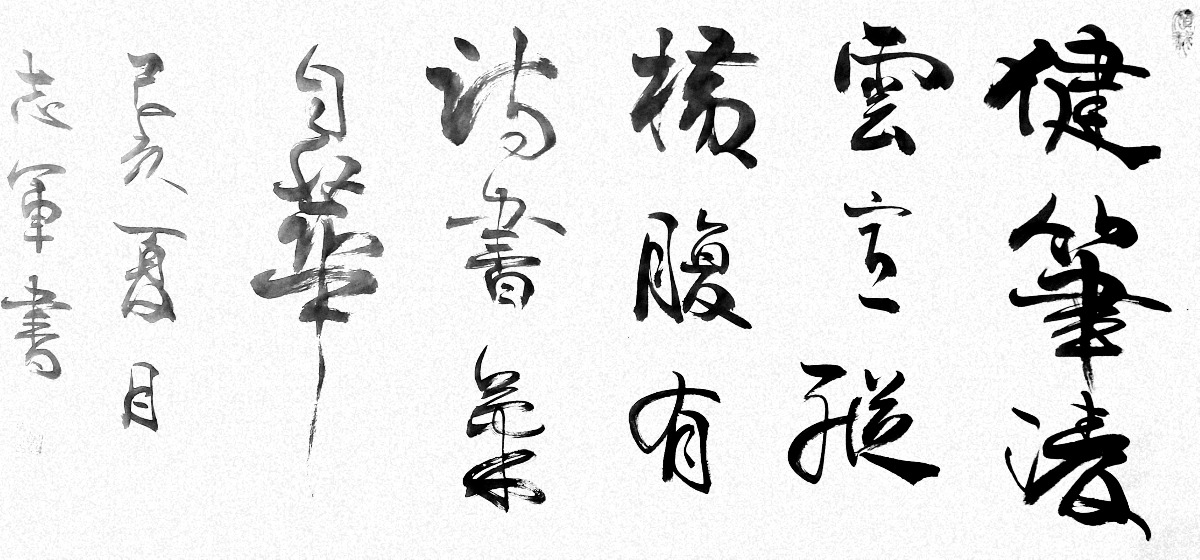 健筆凌
雲意縱
橫腹有
詩書氣
自華
己亥夏月
志軍書